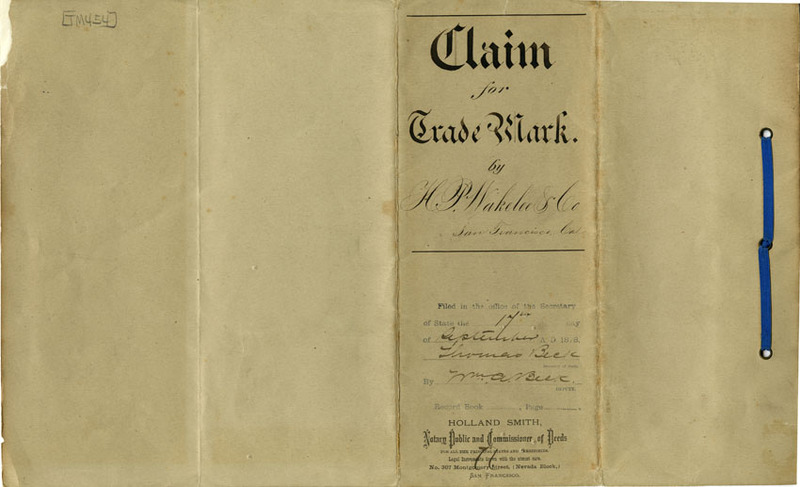 [TM454]
Claim
for
Trade Mark.
by
H. P. Wakelee & Co
San Francisco, Cal
Filed in the office of the Secretary
of State the 17th
of September A. D. 18
Thomas Beck
By Wm. A. Beck.
DEPUTY.
Record Book , Page
HOLLAND SMITH,
Notary Public and Commissioner, of Deeds
FOR ALL THE PRINCIPAL STATES AND TERRITORIES
Legal Instruments drawn with the utmost care.
No. 307 Montgomery Street, (Nevada Block,)
SAN FRANCISCO.